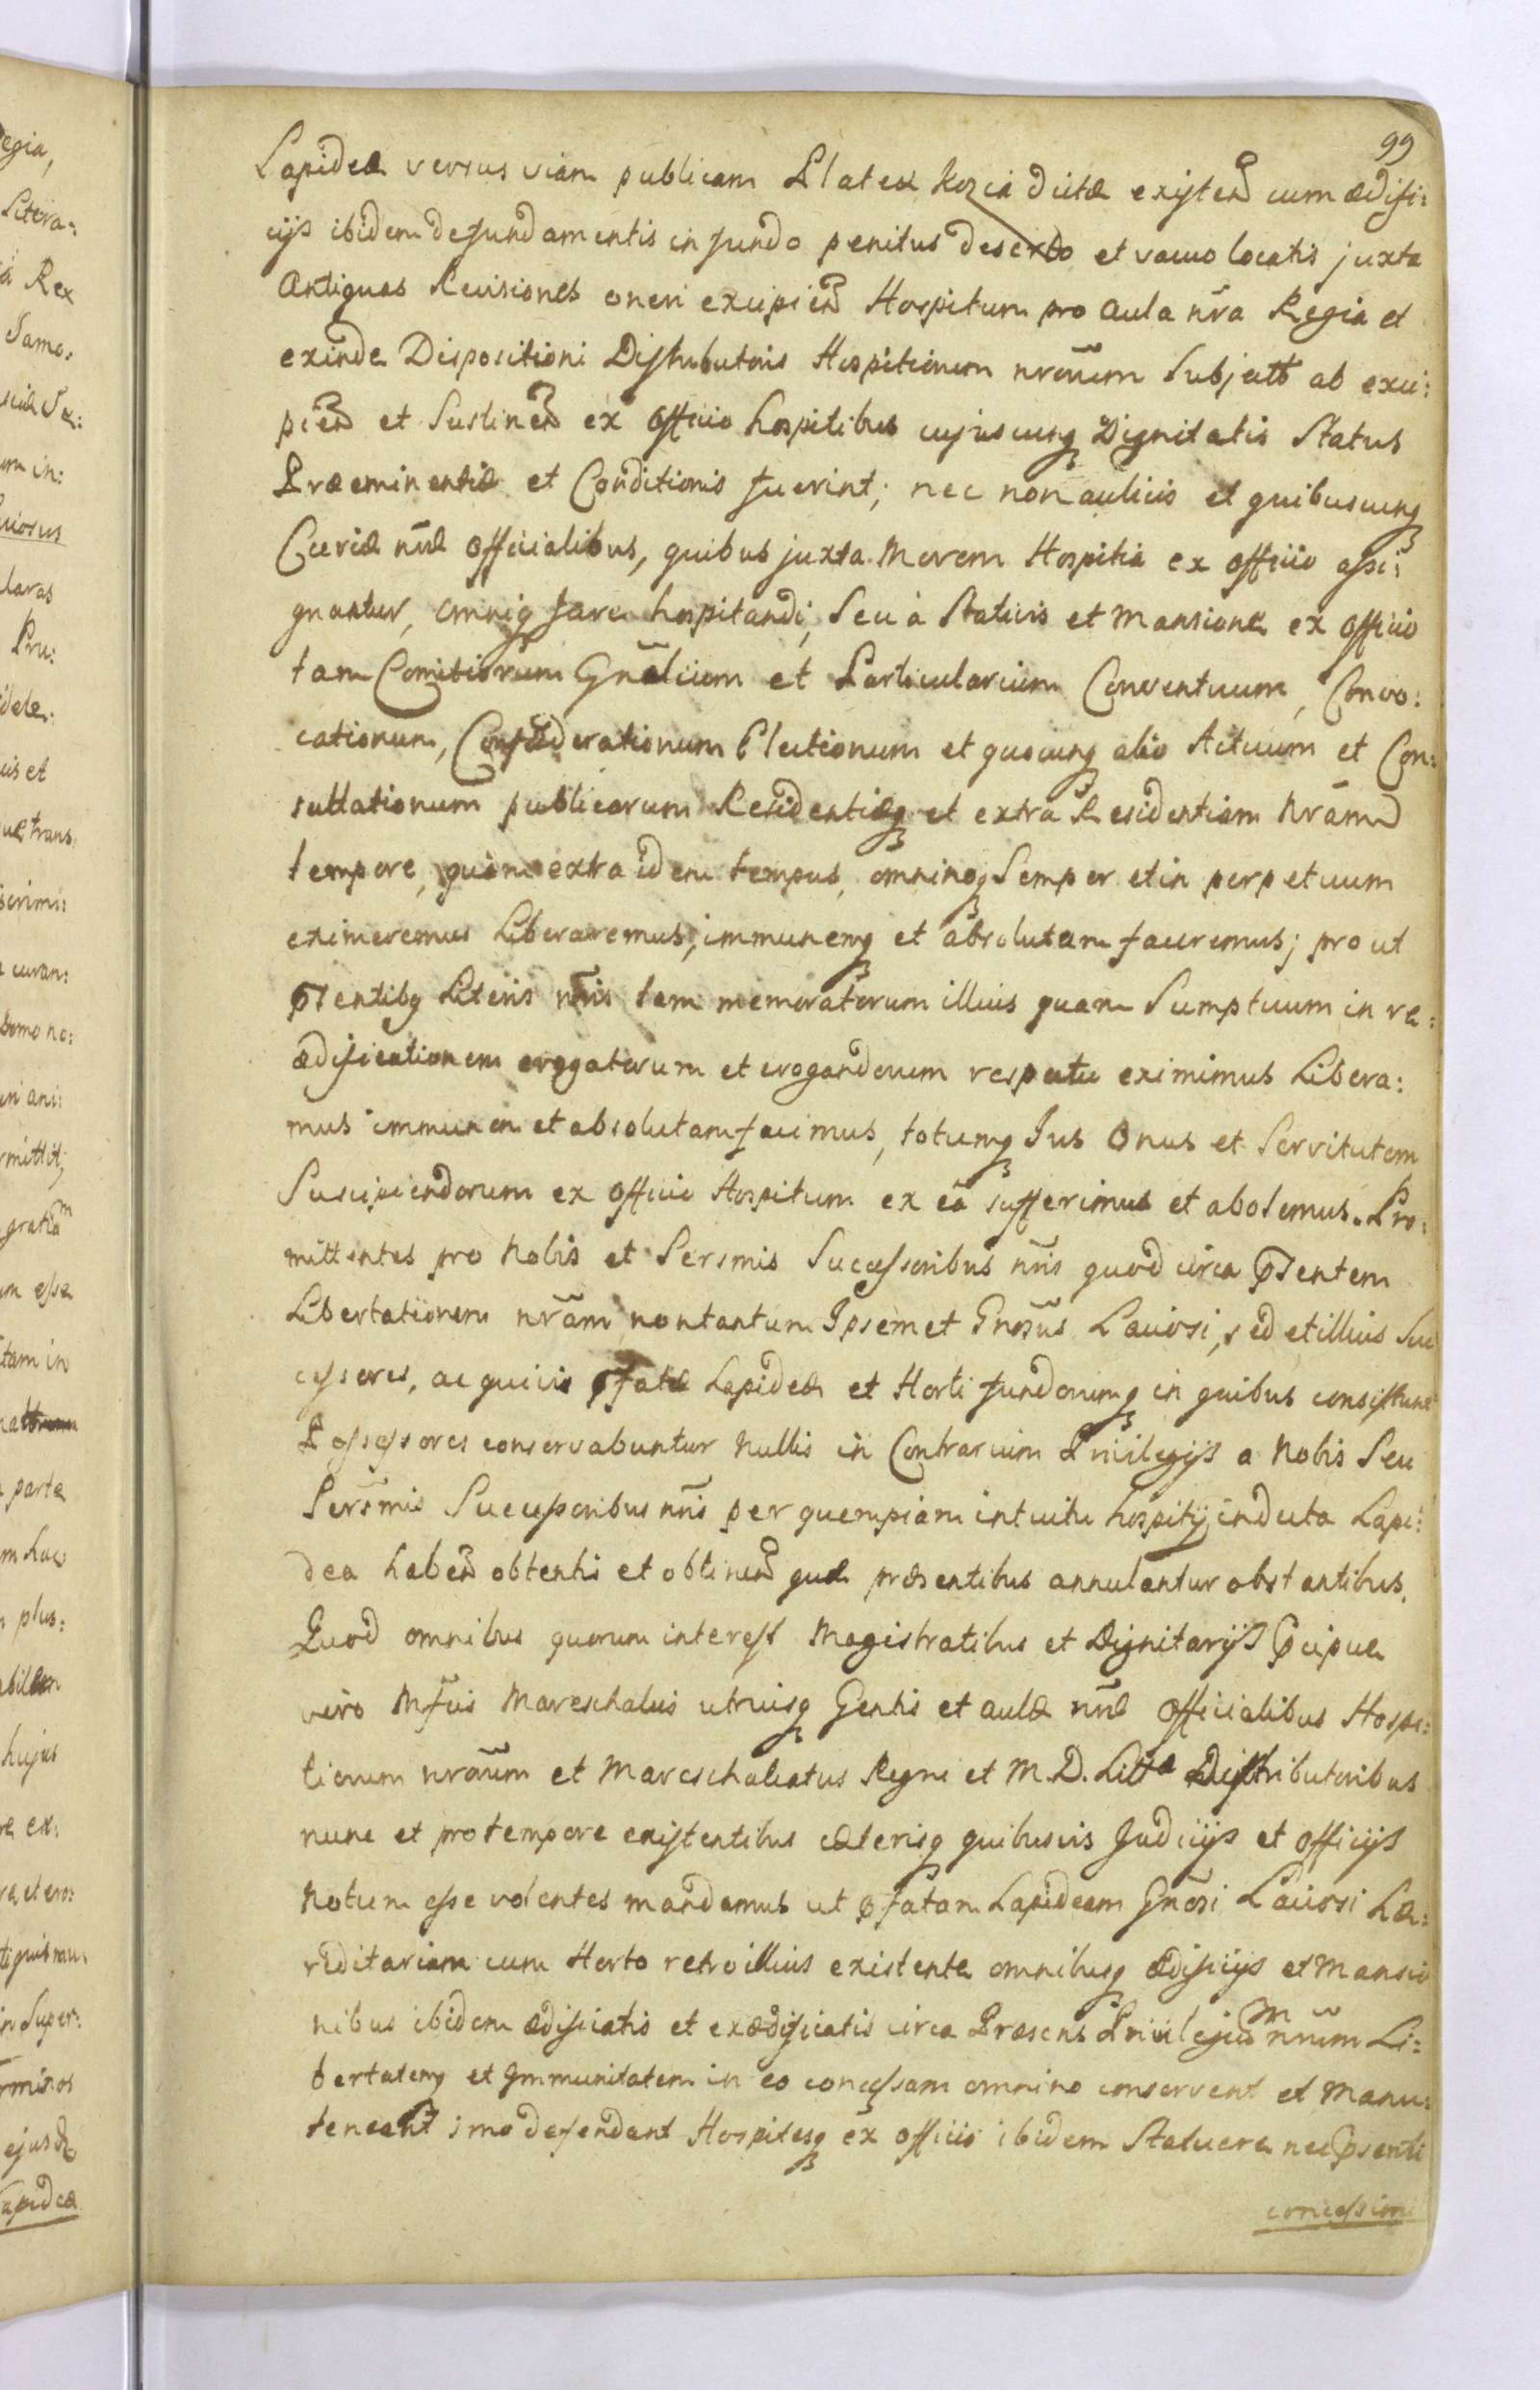 99
Lapideæ versus viam publicam Plateæ Kozia dictæ existen͠d cum ædifi:
cijs ibidem de fundamentis in fundo penitus deserto et vacuo locatis juxta
Antiquas Revisiones oneri excipien͠d Hospitum pro Aula nr̃a Regia et
exinde Dispositioni Distributoris Hospitiorum nrõrum Subjectæ ab exci:
pien͠d et Sustinen͠d ex Officio hospitibus cujuscunq Dignitatis Status
Præeminentiæ et Conditionis fuerint; nec non aulicis et quibuscunq
Curiæ nr̃æ Officialibus, quibus juxta Morem Hospitia ex Officio assi:
gnantur, omniq Jure hospitandi, Seu à Stativis et Mansione ex Officio
tam Comitiorum Gñalium et Particularium Conventuum, Convo:
cationum, Confæderationum Electionum et quocunq alio Actuum et Con:
sultationum publicarum Residentiæq et extra Residentiam Nrãm
tempore, quàm extra idem tempus, omninoq Semper et in perpetuum
eximeremus Liberaremus, immunemq et absolutam faceremus; prout
p̃sentibq Literis nr̃is tam memoratorum illius quam Sumptuum in re:
ædificationem erogatorum et erogandorum respectu eximimus Libera:
mus immunem et absolutam facimus, totumq Jus Onus et Servitutem
Suscipiendorum ex Officio Hospitum ex eâ sufferimus et abolemus. Pro:
mittentes pro Nobis et Sermis Successoribus nr̃is quod circa p̃sentem
Libertationem nrãm non tantum Ipsemet Gnõsus Lauiosi, sed et illius Suc
cessores, ac quivis p̃fatæ Lapideæ et Horti fundorumq in quibus consistunt
Possessores conservabuntur Nullis in Contrarium Privilegijs a Nobis Seu
Serm̃is Successoribus nr̃is per quempiam intuitu hospitij in dicta Lapi:
dea haben͠d obtentis et obtinen͠d quæ præsentibus annulantur obstantibus.
Quod omnibus quorum interest Magistratibus et Dignitarijs p̃cipue
vero Mfcis Mareschalcis utriusq Gentis et aulæ nr̃æ Officialibus Hospi:
tiorum nrõrum et Mareschalcatus Regni et M.D. Litt̃a Distributoribus
nunc et pro tempore existentibus cæterisq quibusvis Judicijs et Officijs
Notum esse volentes mandamus ut p̃fatam Lapideam Gnõsi Lauiosi Hæ:
reditariam cum Horto retro illius existente omnibusq ædificijs et Mansio
nibus ibidem ædificatis et exædificatis circa Præsens Privilegium nr̃um Li:
bertatemq et Immunitatem in eo concessam omnino conservent et Manu:
teneant imo defendant Hospitesq ex officio ibidem Statuere nec p̃senti
concessioni